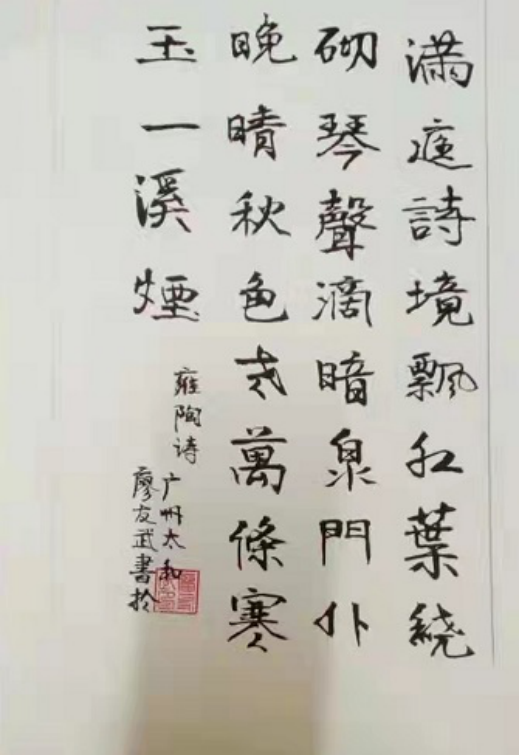 滿庭詩境飄红葉繞
砌琴聲滴暗泉門外
晚晴秋色老萬條寒
玉一溪煙
雍陶诗
廖友武書扵
广州太和